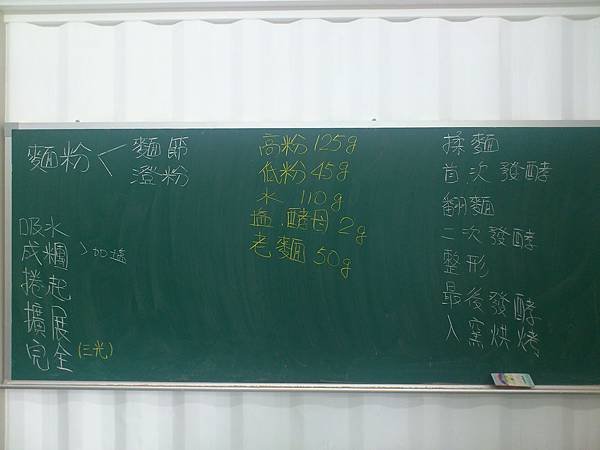 麵粉 < 麵筋
澄粉
吸水
成糰 > 加塩
捲起
擴展
完全 (三光)
高粉 125g
低粉 45g
水 110g
塩.酵母 2g
老麵 50g
揉麵
首次發酵
翻麵
二次發酵
整形
最後發酵
入窯烘烤